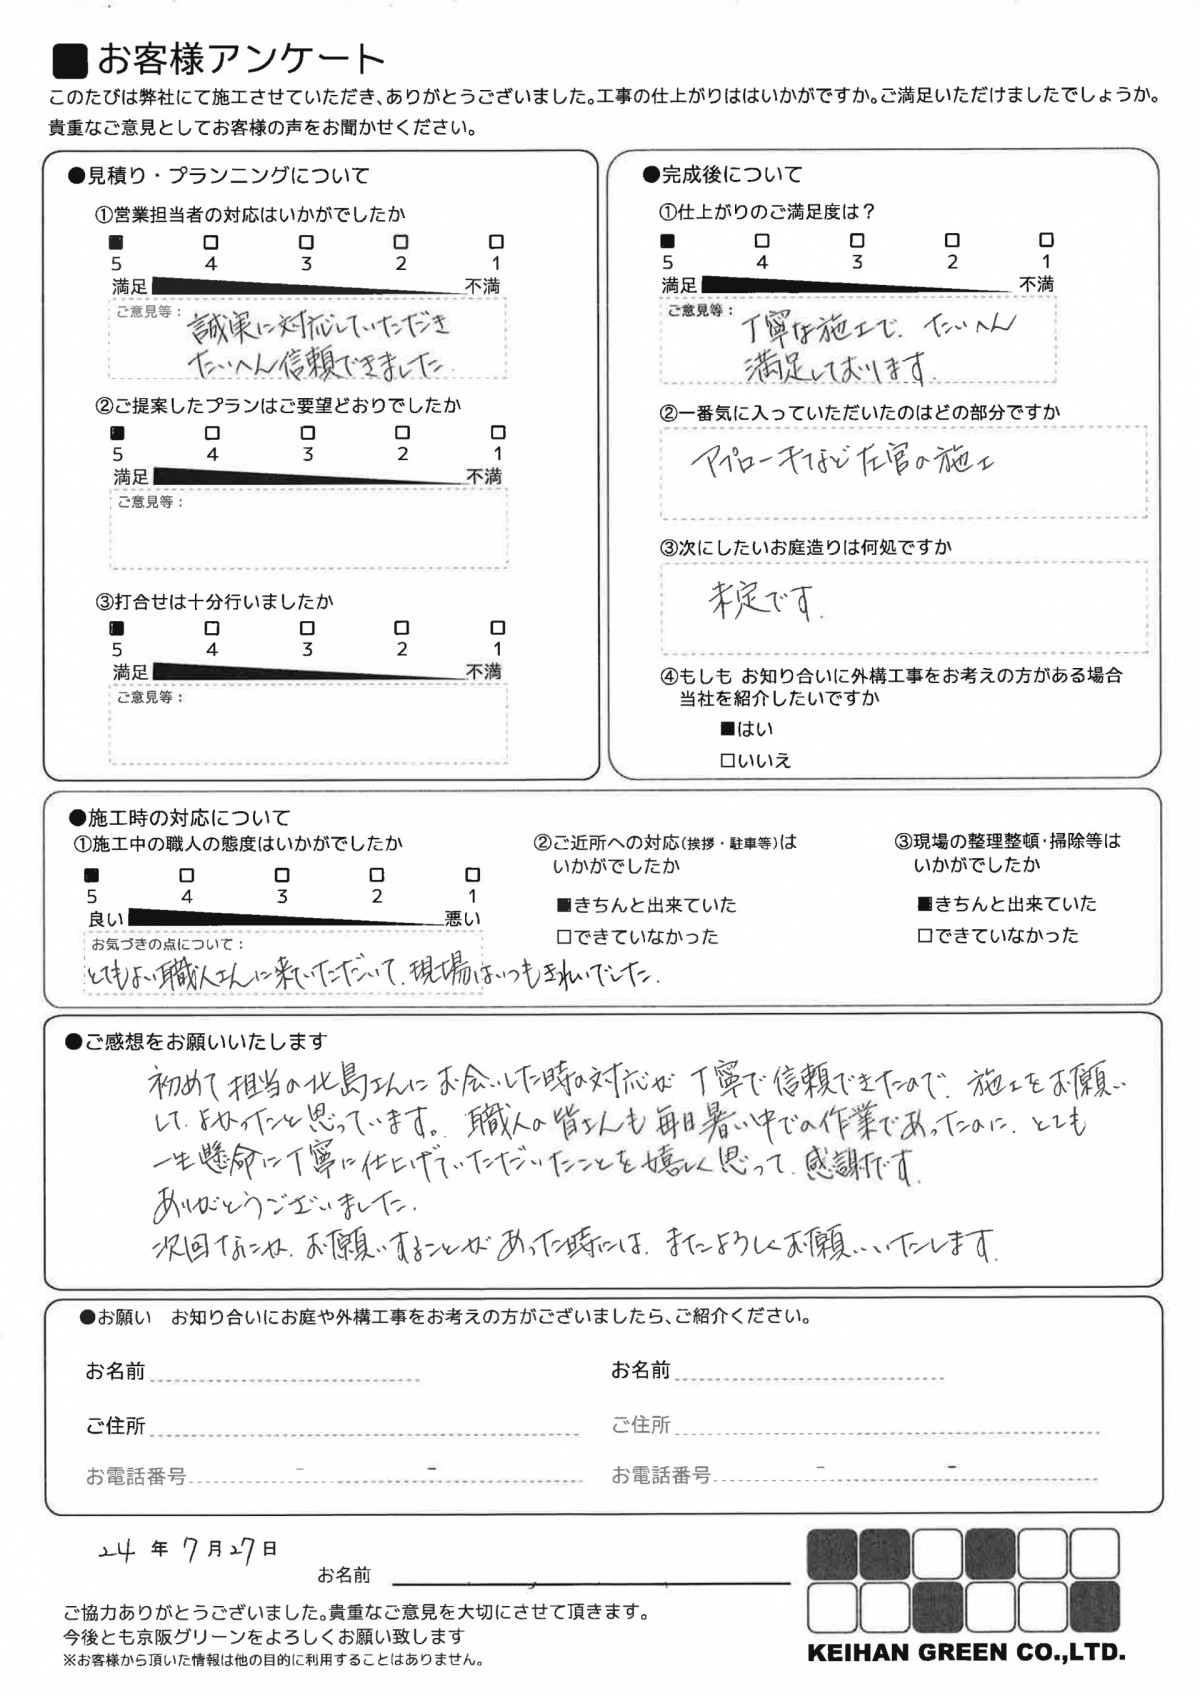 ■お客様アンケート
このたびは弊社にて施工させていただき、ありがとうございました。工事の仕上がりははいかがですか。ご満足いただけましたでしょうか。
貴重なご意見としてお客様の声をお聞かせください。
●見積り・プランニングについて
①営業担当者の対応はいかがでしたか
■ □ □ □ □
5 4 3 2 1
満足 不満
ご意見等：
誠実に対応していただき
たいへん信頼できました.
②ご提案したプランはご要望どおりでしたか
■ □ □ □ □
5 4 3 2 1
満足 不満
ご意見等：
③打合せは十分行いましたか
■ □ □ □ □
5 4 3 2 1
満足 不満
ご意見等：
●完成後について
①仕上がりのご満足度は？
■ □ □ □ □
5 4 3 2 1
満足 不満
ご意見等：
丁寧な施工で、たいへん
満足しております.
②一番気に入っていただいたのはどの部分ですか
アプローチなど左官の施工
③次にしたいお庭造りは何処ですか
未定です.
④もしも お知り合いに外構工事をお考えの方がある場合
当社を紹介したいですか
■はい
□いいえ
●施工時の対応について
①施工中の職人の態度はいかがでしたか
■ □ □ □ □
5 4 3 2 1
良い 悪い
お気づきの点について：
とてもよい職人さんに来ていただいて、現場はいつもきれいでした.
②ご近所への対応(挨拶・駐車等)は
いかがでしたか
■きちんと出来ていた
□できていなかった
③現場の整理整頓・掃除等は
いかがでしたか
■きちんと出来ていた
□できていなかった
●ご感想をお願いいたします
初めて担当の北島さんにお会いした時の対応が丁寧で信頼できたので、施工をお願い
して、よかったと思っています。職人の皆さんも毎日暑い中での作業であったのに、とても
一生懸命に丁寧に仕上げていただいたことを嬉しく思って、感謝です.
ありがとうございました.
次回なにか、お願いすることがあった時には、またよろしくお願いいたします.
●お願い　お知り合いにお庭や外構工事をお考えの方がございましたら、ご紹介ください。
お名前 お名前
ご住所 ご住所
お電話番号 － － お電話番号 － －
24 年 7 月 27 日
お名前
ご協力ありがとうございました。貴重なご意見を大切にさせて頂きます。
今後とも京阪グリーンをよろしくお願い致します
※お客様から頂いた情報は他の目的に利用することはありません。
KEIHAN GREEN CO.,LTD.